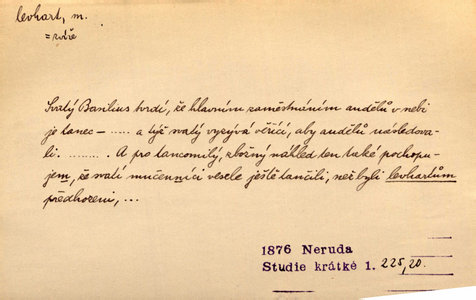 levhart, m.
= zvíře
Svatý Basilius tvrdí, že hlavním zaměstnáním andělů v nebi
je tanec – ...... a týž svatý vyzývá věřící, aby andělů následova-
li. ......... A pro tancomilý, zbožný náhled ten také pochopu-
jem, že svatí mučenníci vesele ještě tančili, než byli levhartům
předhozeni, ...
1876 Neruda
Studie krátké 1. 225,20.